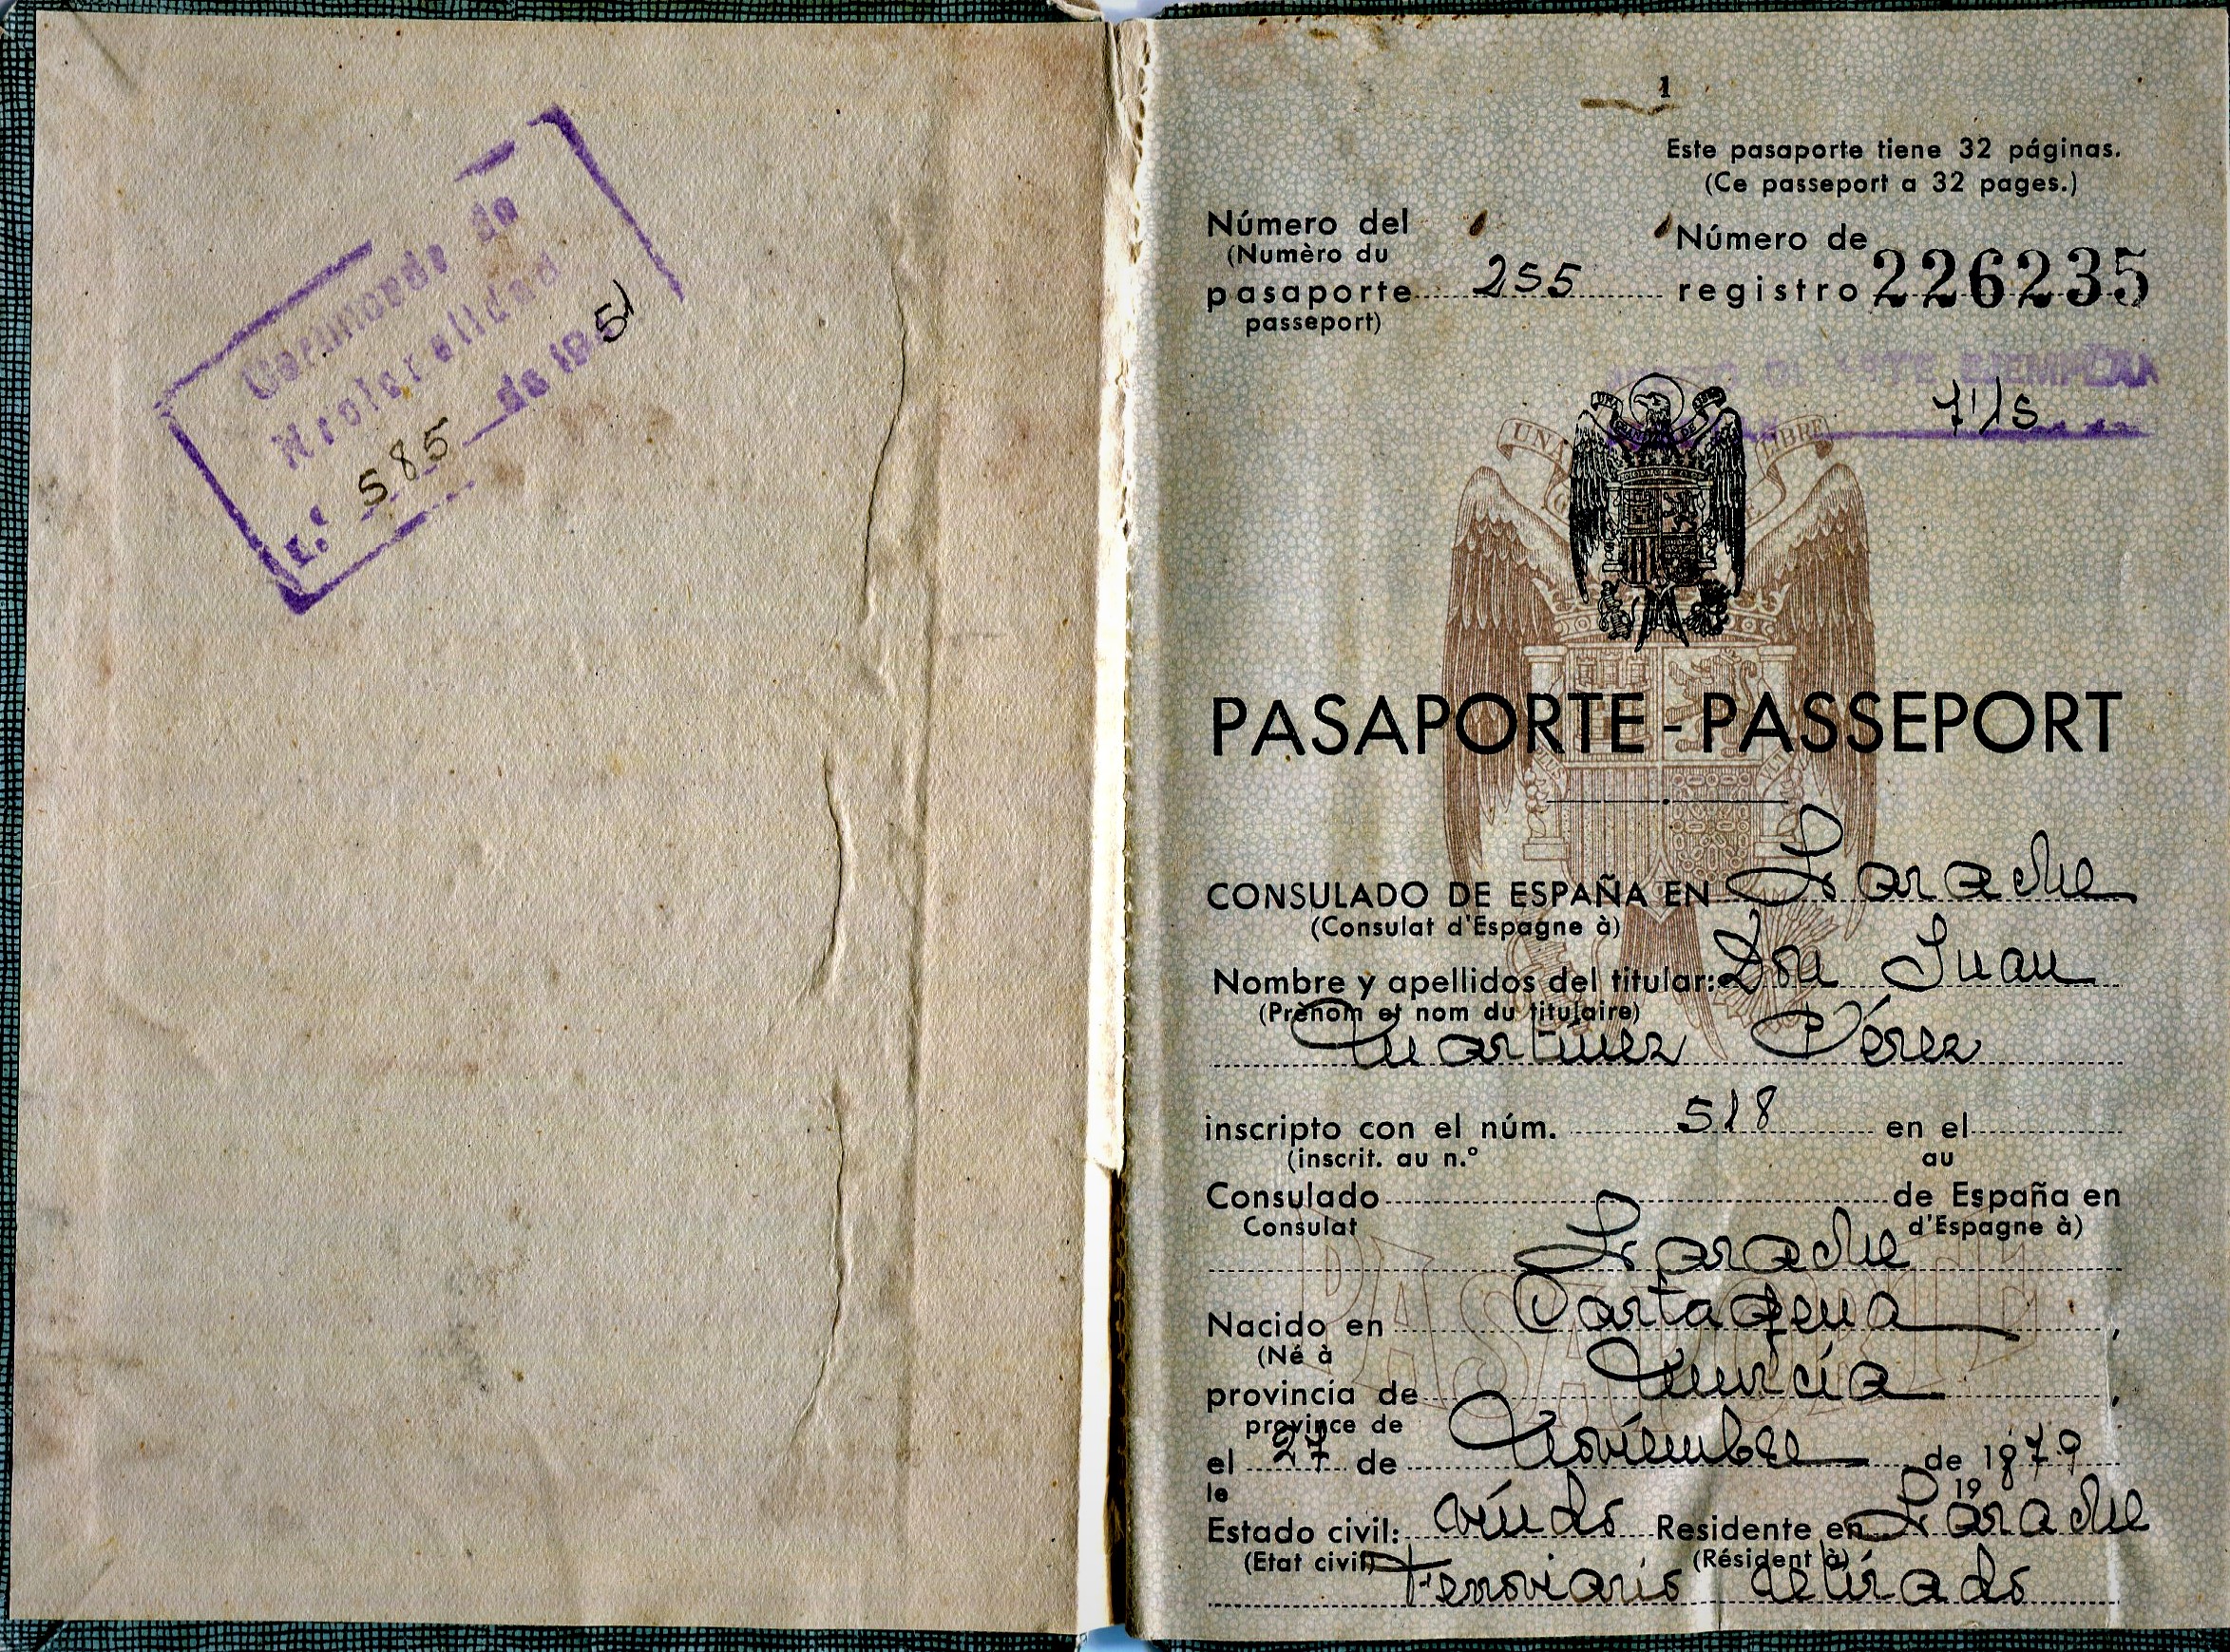 de
N.º 585 de 1951
1
Este pasaporte tiene 32 páginas.
(Ce passeport a 32 pages.)
Número del
(Numèro du
pasaporte 255
passeport)
Número de
registro 226235
EJEMPLAR
7'15
UNA LIBRE
PASAPORTE - PASSEPORT
CONSULADO DE ESPAÑA EN Larache
(Consulat d'Espagne à)
Nombre y apellidos del titular: Don Juan
(Prènom et nom du titulaire)
Martínez Pérez
inscripto con el núm. 518 en el
(inscrit. au n.º au
Consulado de España en
Consulat d'Espagne à)
Larache
Nacido en Cartagena,
(Né à
provincia de Murcia,
province de
el 27 de Noviembre de 1879
le 19
Estado civil: viudo Residente en Larache
(Etat civil) (Résident à)
Ferroviario retirado
PASAPORTE